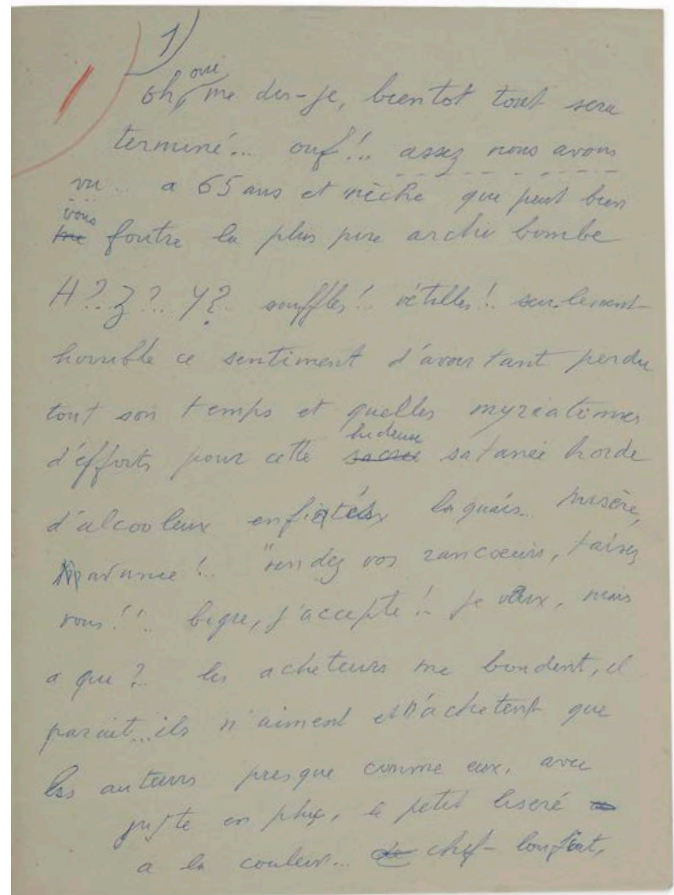 1)
oh, oui me dis-je, bientôt tout sera
terminé... ouf!.. assez nous avons
vu... a 65 ans et mèche que peut bien
vous me foutre la plus pire archi bombe
H?.. Z?.. Y?.. souffles!.. vétilles!.. seulement
horrible ce sentiment d'avoir tant perdu
tout son temps et quelles myriatonnes
d'efforts pour cette hideuse sacrée satanée horde
d'alcooleux enfiatés laquais... misère,
Madame!.. "vendez vos rancœurs, taisez
vous!".. bigre, j'accepte!.. je veux, mais
a qui?.. les acheteurs me boudent, il
parait... ils n'aiment et n'achetent que
les auteurs presque comme eux, avec
juste en plus, le petit liseré
a la couleur... chef-